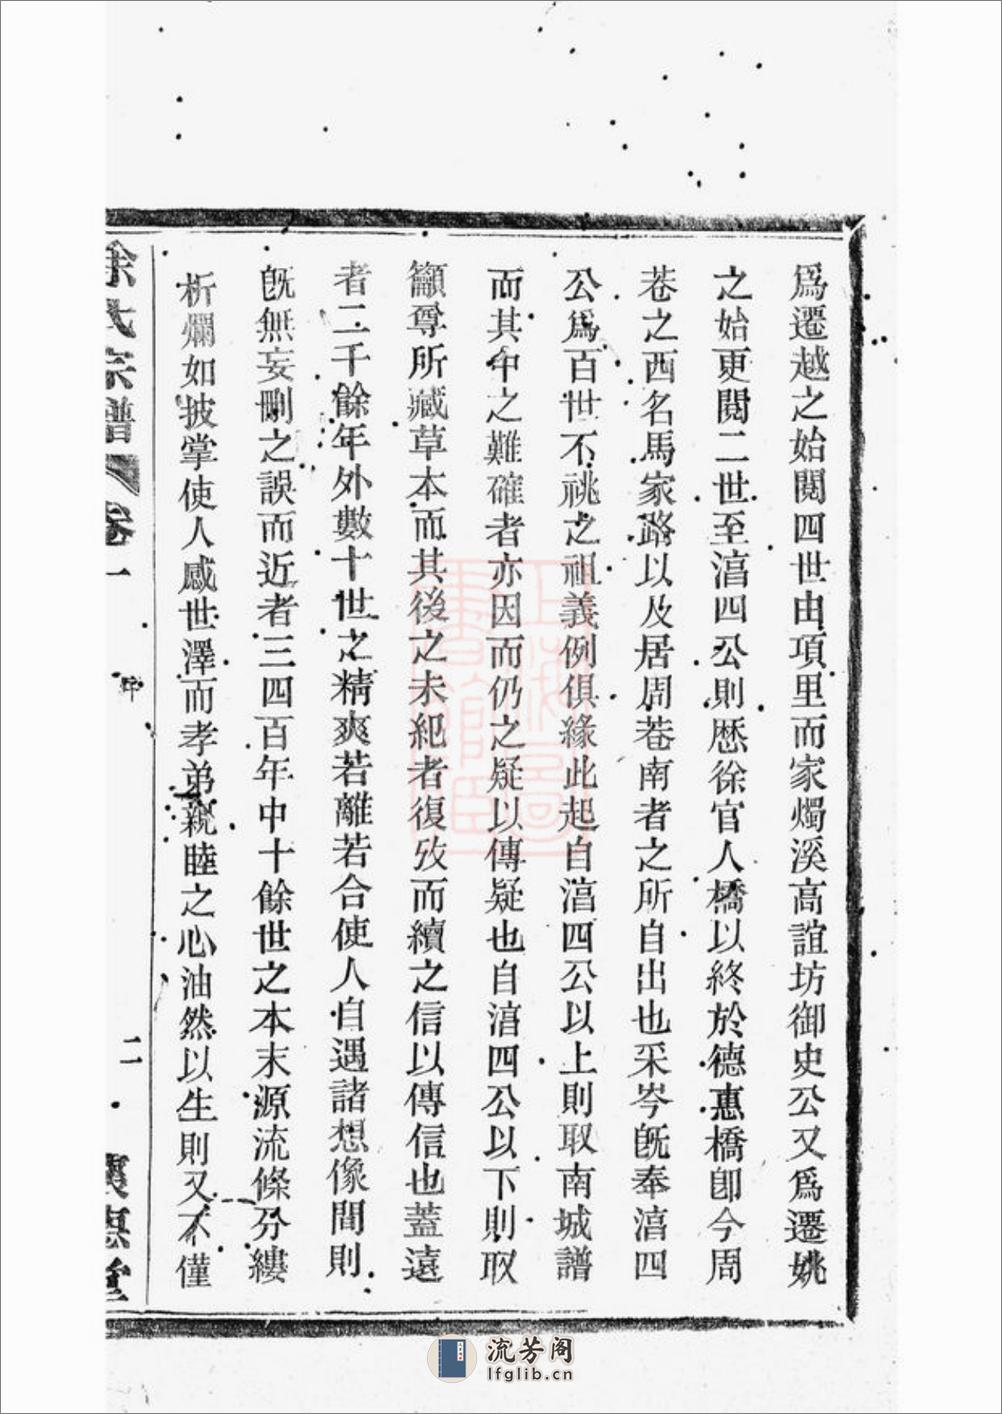 爲遷越之始閱四世由項里而家燭溪高誼坊御史公又爲遷姚
之始更閱二世至湻四公則歷徐官人橋以終於德惠橋卽今周
巷之西名馬家路以及居周巷南者之所自出也采岑旣奉湻四
公爲百世不祧之祖義例俱緣此起自湻四公以上則取南城譜
而其中之難確者亦因而仍之疑以傳疑也自湻四公以下則取
籲尊所藏草本而其後之未紀者復攷而續之信以傳信也蓋遠
者二千餘年外數十世之精爽若離若合使人自遇諸想像間則
旣無妄刪之誤而近者三四百年中十餘世之本末源流條分縷
析爛如披掌使人感世澤而孝弟親睦之心油然以生則又不僅
徐氏宗譜 卷一 序 二
上海圖書館藏
流芳阁
lfglib.cn